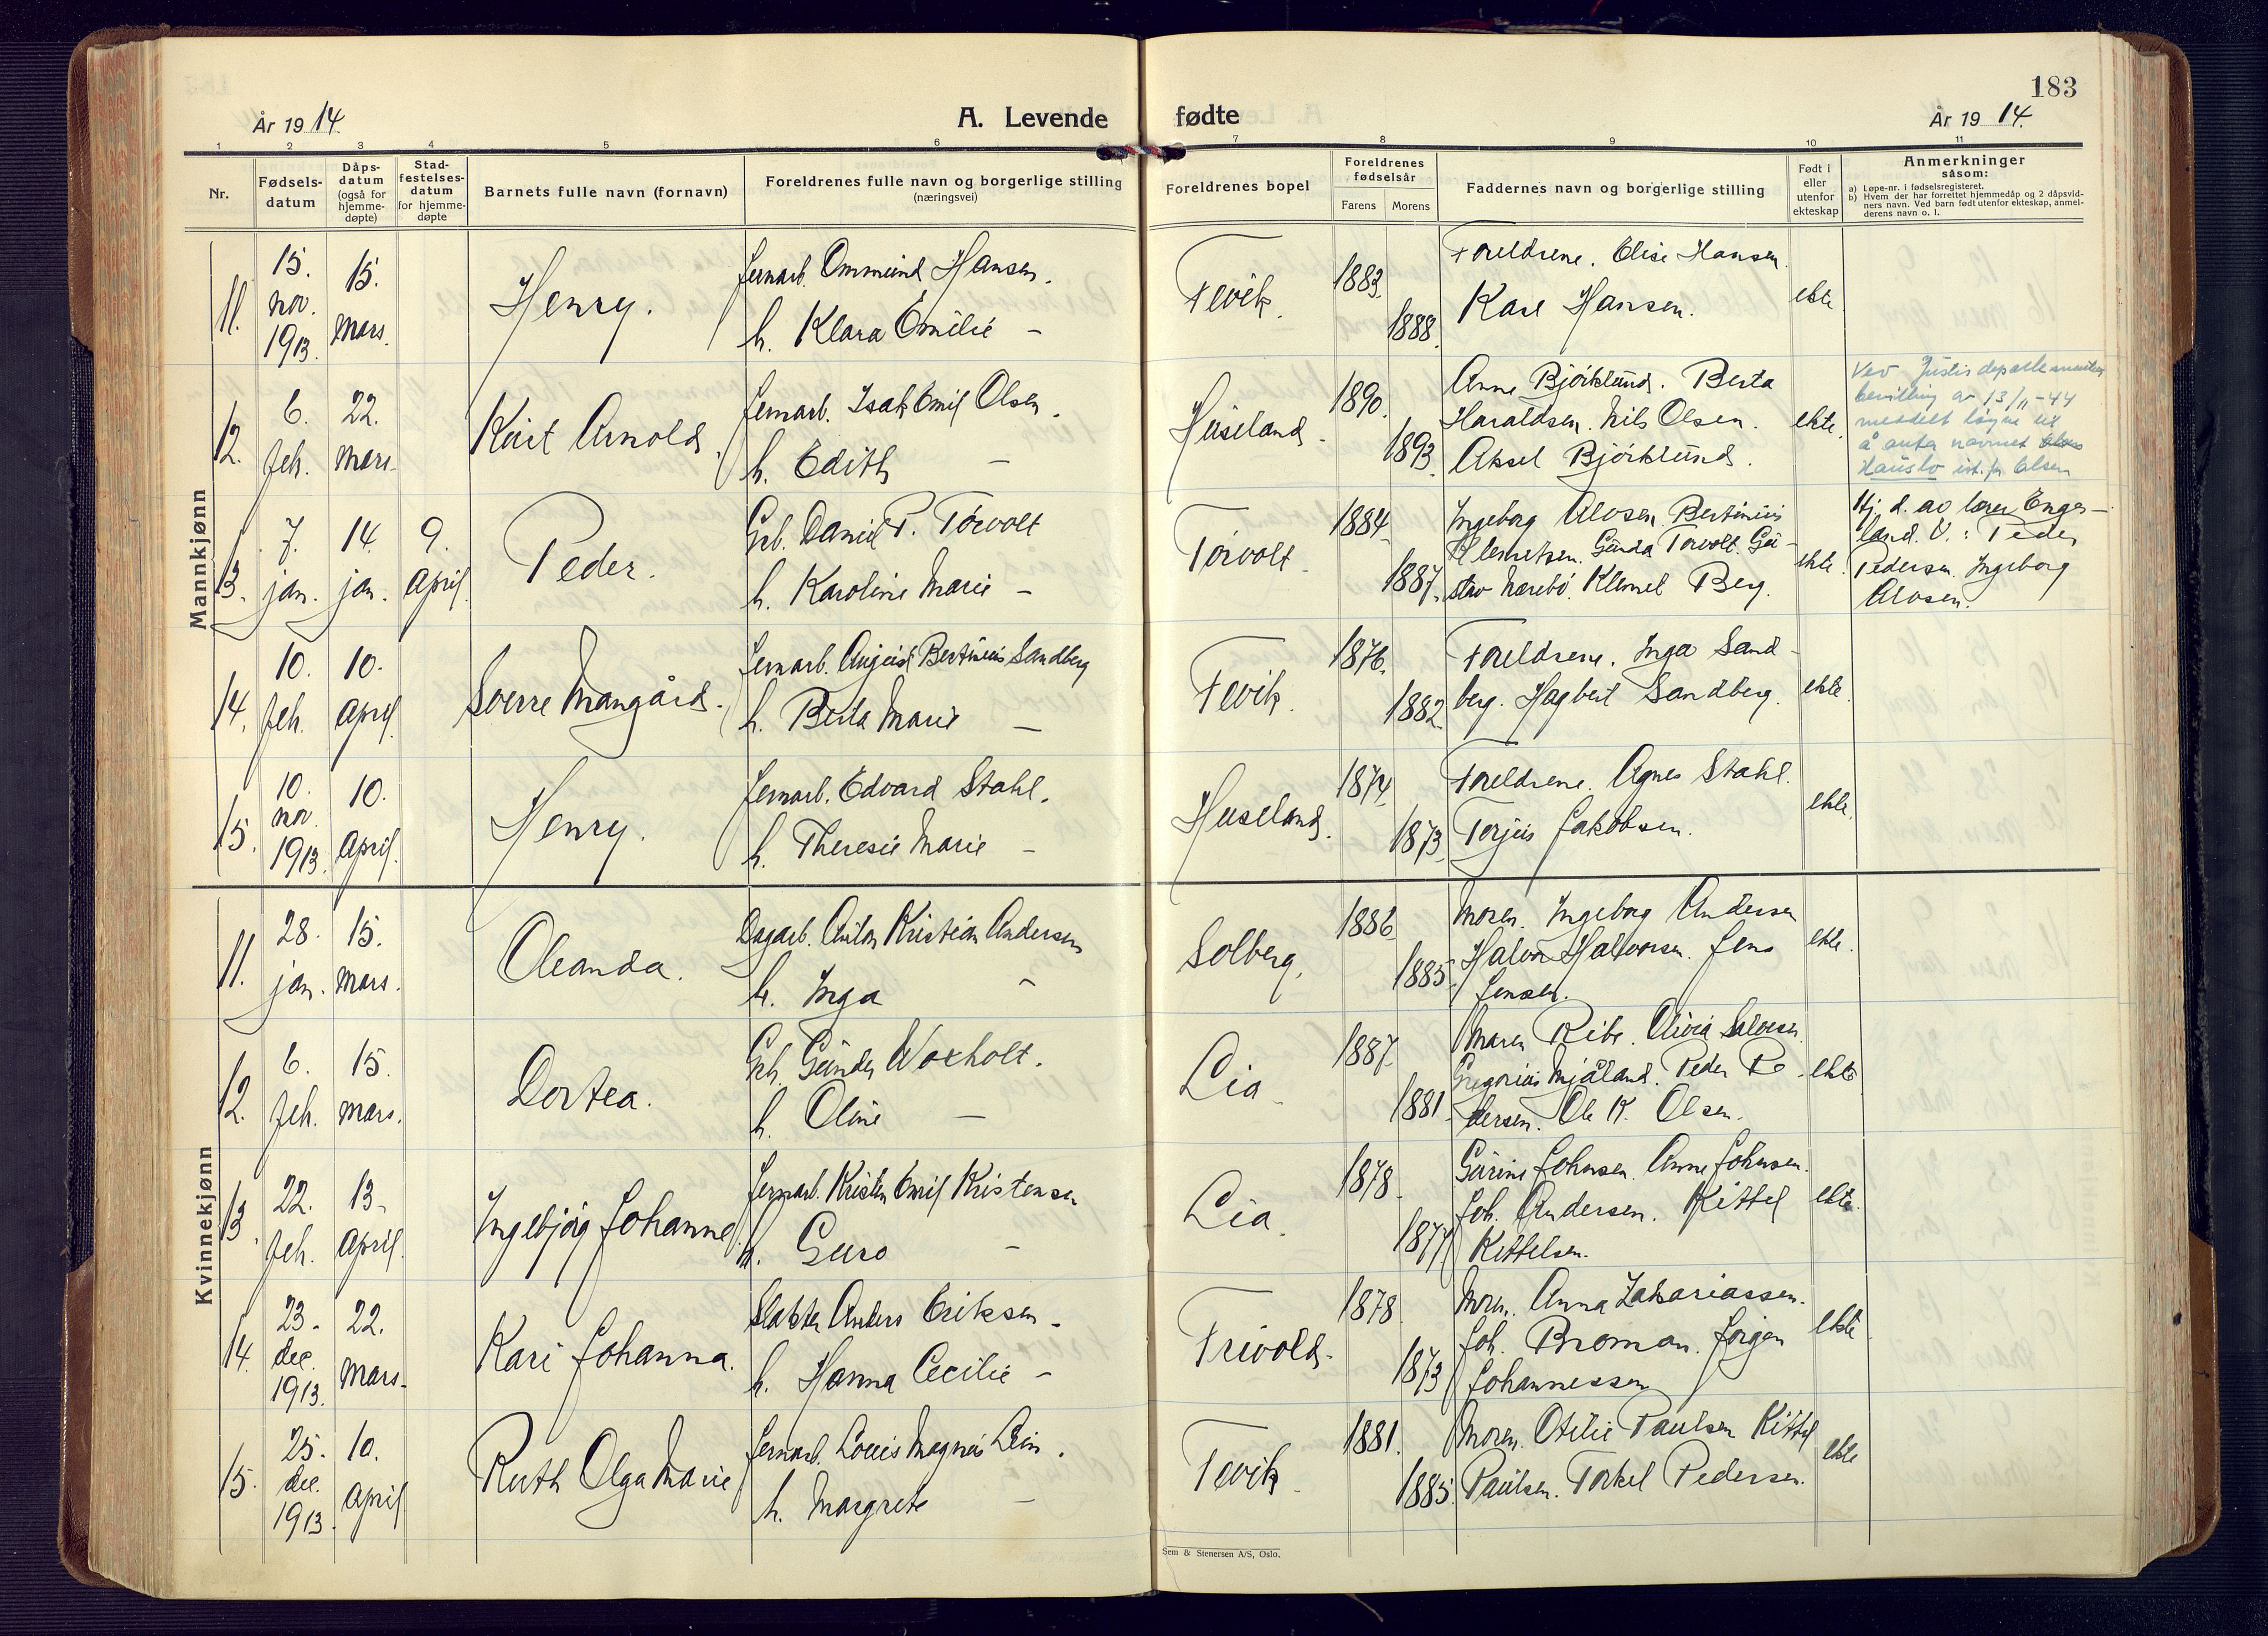 183
År 1914.
A. Levende
fødte
År 1914.
1 2 3 4 5 6 7 8 9 10 11
Nr.
Fødsels-
datum
Dåps-
datum
(også for
hjemme-
døpte)
Stad-
festelses-
datum
for hjemme-
døpte
Barnets fulle navn (fornavn)
Foreldrenes fulle navn og borgerlige stilling
(næringsvei)
Foreldrenes bopel
Foreldrenes
fødselsår
Farens
Morens
Faddernes navn og borgerlige stilling
Født i
eller
utenfor
ekteskap
Anmerkninger
såsom:
a) Løpe-nr. i fødselsregisteret.
b) Hvem der har forrettet hjemmedåp og 2 dåpsvid-
ners navn. Ved barn født utenfor ekteskap, anmel-
derens navn o. l.
Mannkjønn
11.
15.
nov.
1913.
15.
Mars.
Henry.
Jernarb. Ommund Hansen.
h. Klara Emilie –
Fevik.
1883.
1888.
Foreldrene. Elise Hansen.
Karl Hansen.
ekte
12.
6.
feb.
22.
Mars
Kurt Arnold.
Jernarb. Isak Emil Olsen.
h. Edith –
Huseland.
1890.
1893.
Anne Bjórklund. Berta
Haraldsen. Nils Olsen.
Aksel Bjórklund.
ekte.
Ved Justisdepartementets
bevilling av 13/11-44
meddelt løyve til
å anta navnet
Hauslo ist. for Olsen
13.
7.
jan.
14.
jan.
9.
April.
Peder.
Grb. Daniel P. Tórvolt
h. Karoline Marie –
Tórvolt.
1884.
1887.
Ingeborg Alvsen. Bertinius
Klemetsen. Gunda Torvolt. Gu-
stav Nærebø. Klemet Berg.
ekte.
Hj. d. av lærer Enge-
land. V.: Peder
Pedersen. Ingeborg
Alvsen.
14.
10.
feb.
10.
April
Sverre Mangård.
Jernarb. August Bertinius Sandberg
h. Berta Marie –
Fevik.
1876.
1882.
Foreldrene. Inga Sand-
berg. Hagbert Sandberg.
ekte.
15.
10.
nov.
1913.
10.
April.
Henry.
Jernarb. Edvard Stahl.
h. Theresie Marie –
Huseland.
1874.
1873.
Foreldrene. Agnes Stahl.
Torjus Jakobsen.
ekte.
Kvinnekjønn
11.
28.
jan.
15.
Mars.
Oleanda.
Dagarb. Anton Kristian Andersen
h. Inga –
Solberg.
1886.
1885.
Moren. Ingeborg Andersen
Halvor Halvorsen. Jens
Jensen.
ekte.
12.
6.
feb.
15.
Mars.
Dortea.
Grb. Gunder Woxholt.
h. Oline –
Lia.
1887.
1881.
Maren Ribe. Olivia Salvesen.
Gregorius Mjåland. Peder Pe-
dersen. Ole K. Olsen.
ekte
13.
22.
feb.
13.
April.
Ingebjørg Johanne.
Jernarb. Kristen Emil Kristensen
h. Guro –
Lia.
1878.
1877.
Gurine Johnsen. Anne Johnsen.
Joh. Andersen. Kittel
Kittelsen.
ekte.
14.
23.
dec.
1913.
22.
Mars.
Kari Johanna.
Slakter Anders Eriksen.
h. Hanna Cecilie –
Frivold.
1878.
1873.
Moren. Anna Zakariassen.
Joh. Broman. Jørgen
Johannessen
ekte
15.
25.
dec.
1913.
10.
April
Ruth Olga Marie
Jernarb. Louis Magnus Lein.
h. Margrete –
Fevik.
1881.
1885.
Moren. Otilie Paulsen Kittel
Paulsen. Torkel Pedersen.
ekte
Sem & Stenersen A/S, Oslo.